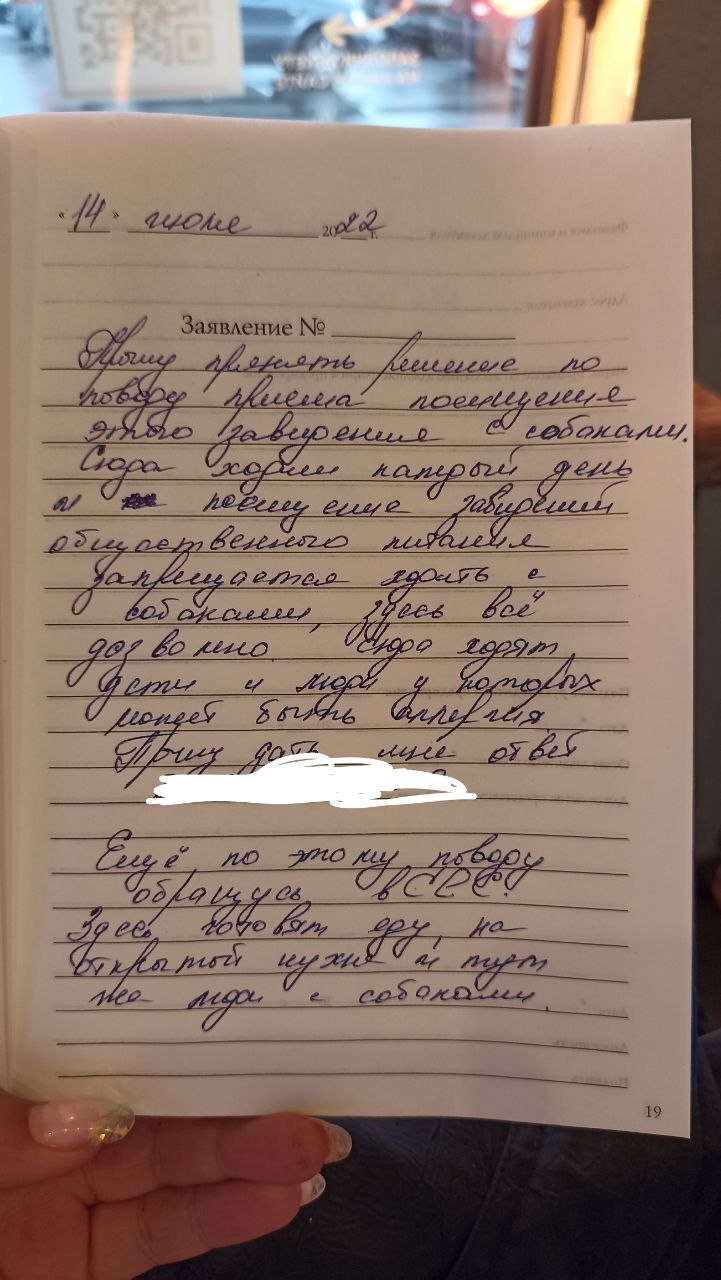 "14" июля 2022 г.
Заявление №
Прошу принять решение по
поводу приема посищения
этого завидения с собаками.
Сюда ходят каждый день
и посищение завидений
общественного питания
запрещается ходить с
собаками, здесь всё
дозволено. Сюда ходят
дети и люди у которых
может быть аллергия.
Прошу дать мне ответ
Ещё по этому поводу
обращусь в СЕС.
Здесь готовят еду, на
открытой кухне и тут
же люди с собаками.
19